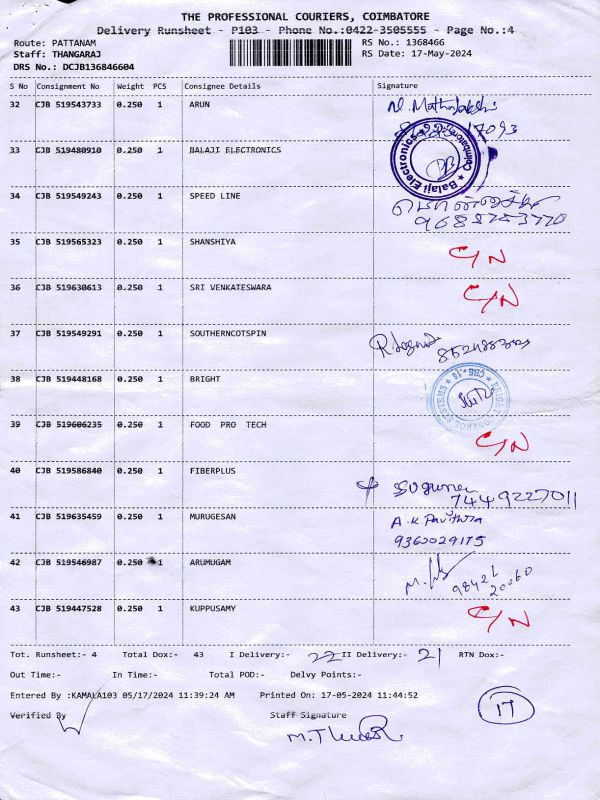 THE PROFESSIONAL COURIERS, COIMBATORE
Delivery Runsheet - P103 - Phone No.:0422-3505555 - Page No.:4
Route: PATTANAM RS No.: 1368466
Staff: THANGARAJ RS Date: 17-May-2024
DRS No.: DCJB136846604
S No Consignment No Weight PCS Consignee Details Signature
32 CJB 519543733 0.250 1 ARUN
33 CJB 519480910 0.250 1 BALAJI ELECTRONICS Balaji Electronics Coimbatore
34 CJB 519549243 0.250 1 SPEED LINE
9688753770
35 CJB 519565323 0.250 1 SHANSHIYA C/N
36 CJB 519630613 0.250 1 SRI VENKATESWARA C/N
37 CJB 519549291 0.250 1 SOUTHERNCOTSPIN
38 CJB 519448168 0.250 1 BRIGHT
39 CJB 519606235 0.250 1 FOOD PRO TECH C/N
40 CJB 519586840 0.250 1 FIBERPLUS
7449227011
41 CJB 519635459 0.250 1 MURUGESAN A.K Pavithra
9360029175
42 CJB 519546987 0.250 1 ARUMUGAM
98421
20060
43 CJB 519447528 0.250 1 KUPPUSAMY C/N
Tot. Runsheet:- 4 Total Dox:- 43 I Delivery:- 22 II Delivery:- 21 RTN Dox:-
Out Time:- In Time:- Total POD:- Delvy Points:-
Entered By :KAMALA103 05/17/2024 11:39:24 AM Printed On: 17-05-2024 11:44:52
Verified By Staff Signature 17